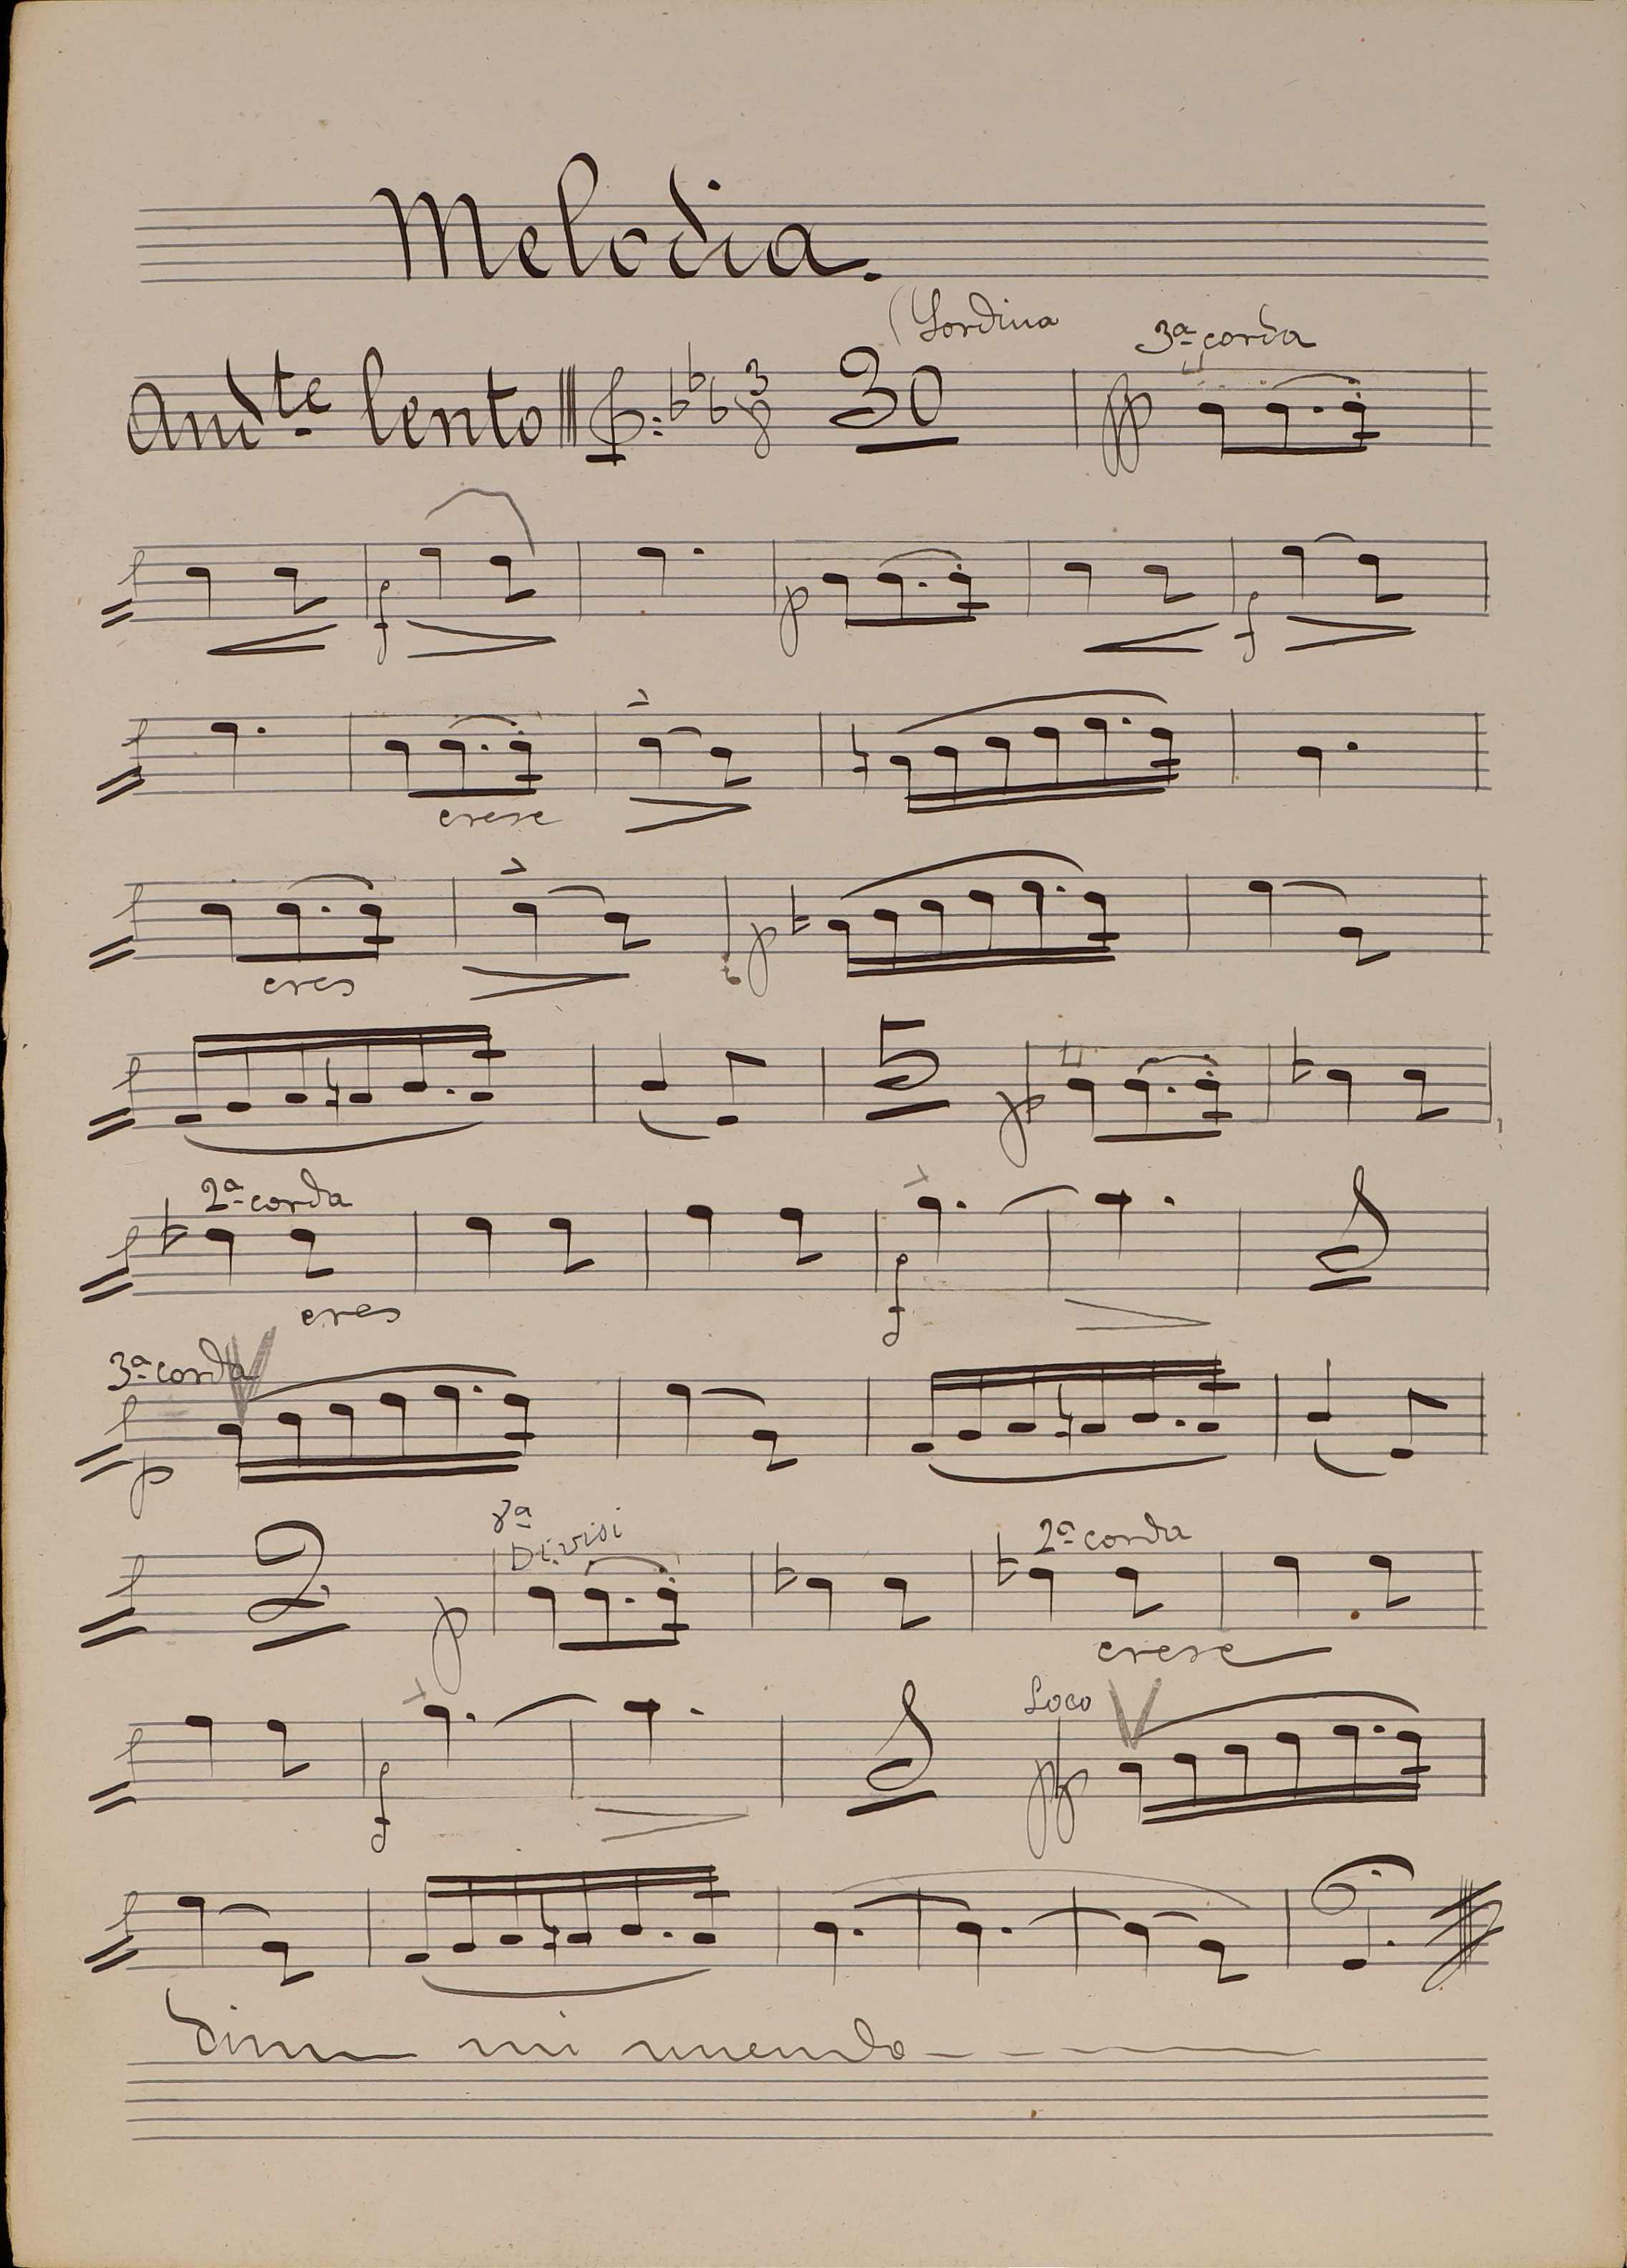 Melodia.
(Sordina
3ª corda
Andte lento 3 8 30 pp
f p f
cresc
cres p
5 p
2ª corda
cres f
3ª corda
p
8ª
Divisi 2ª corda
2 p cresc
Loco
f pp
dim mi nuendo